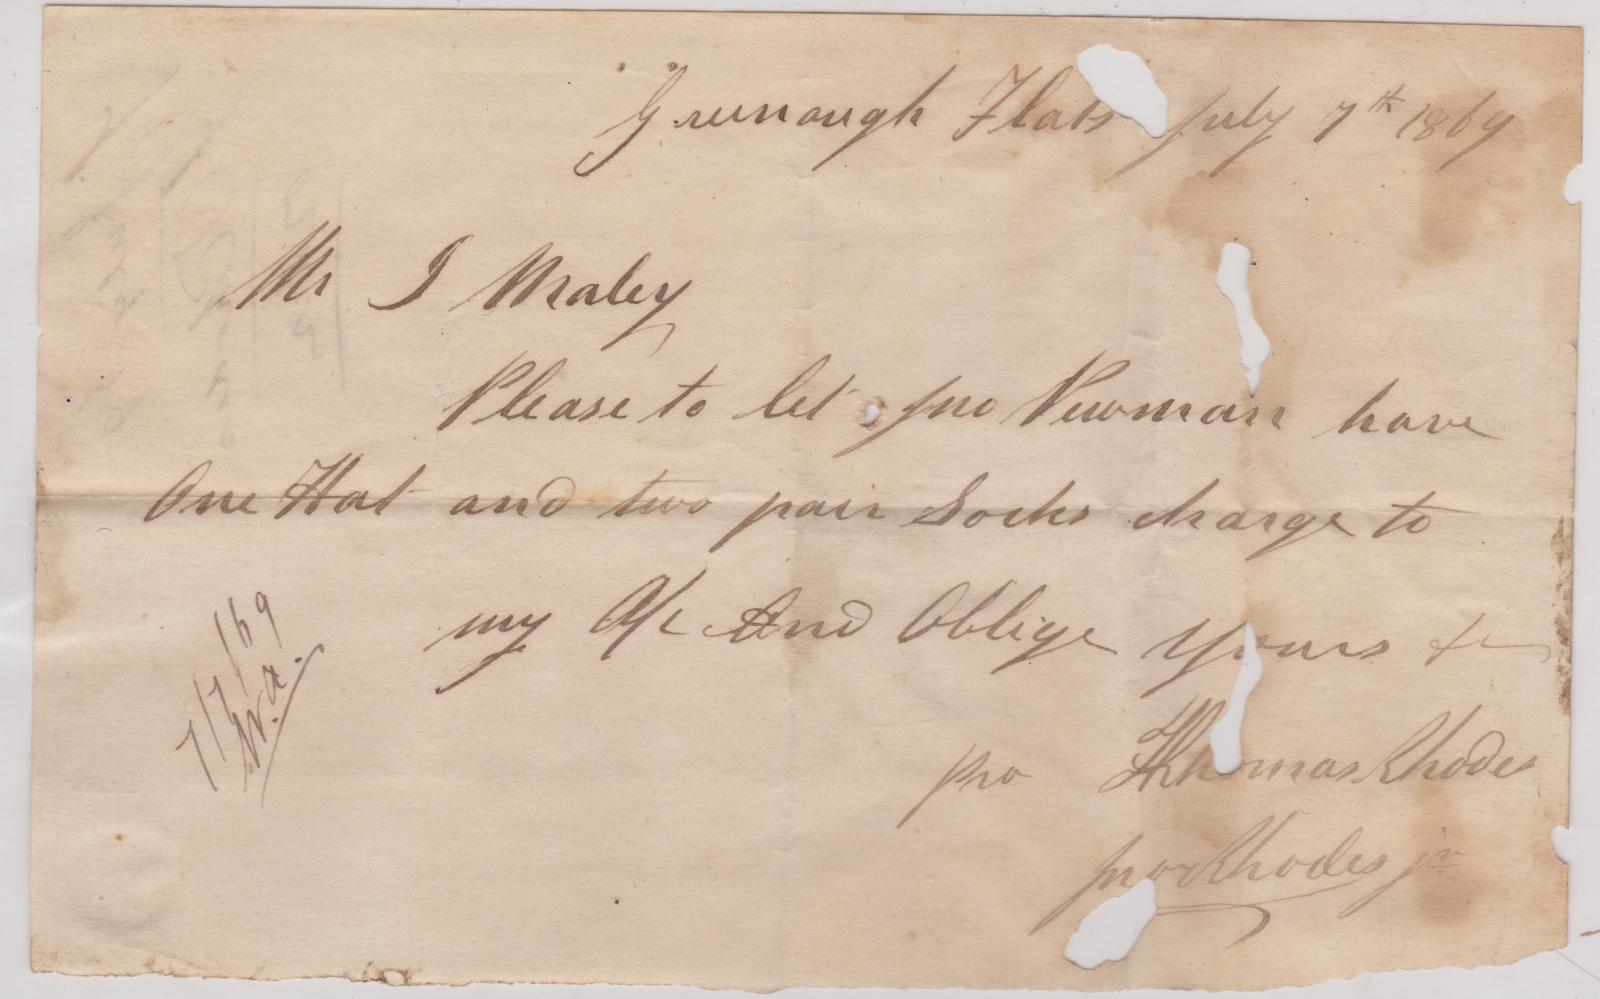 Greenough Flats July 7th 1869
Mr J Maley
Please to let Jno Newman have
One Hat and two pair Socks charge to
my A/c And Oblige Yours &c
pro Thomas Rhodes
Jno Rhodes jn
7/7/69